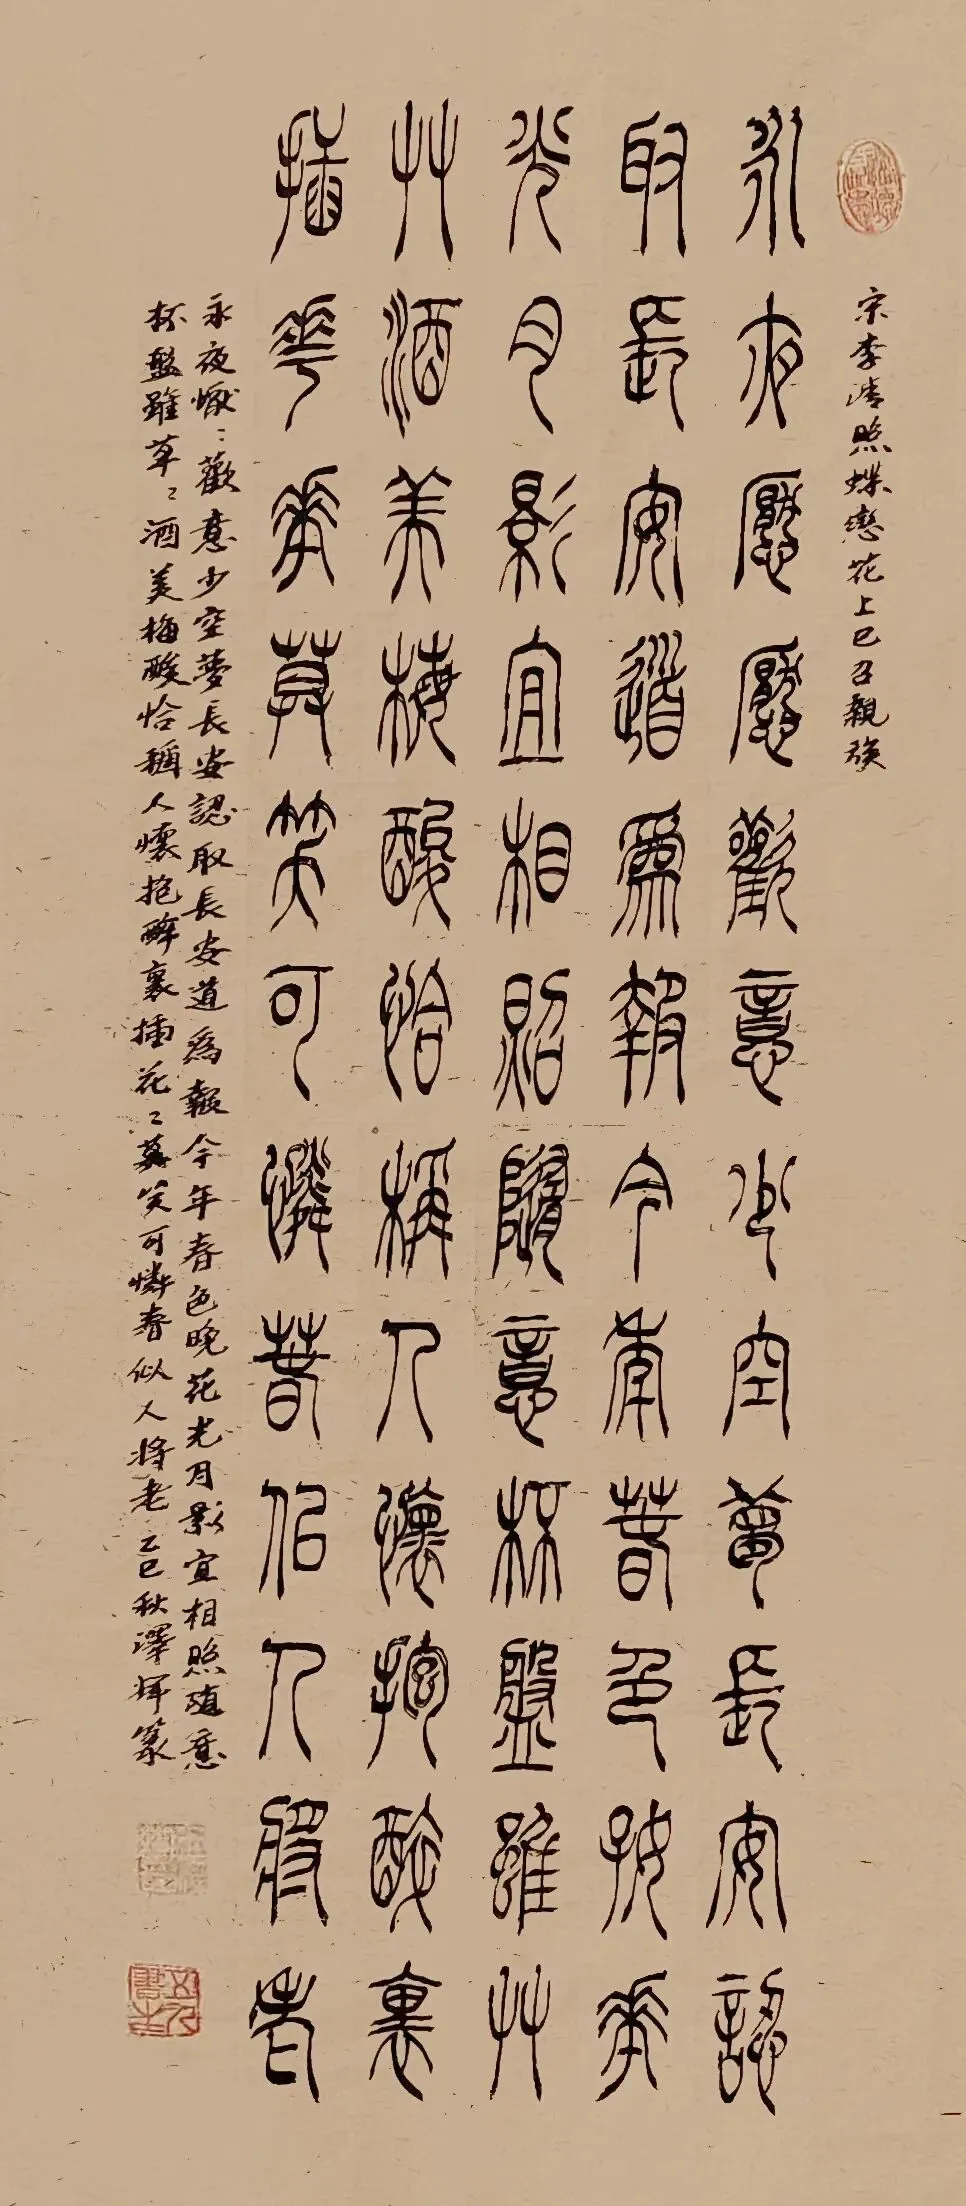 宗李清照蝶戀花上巳召親族
永夜懕懕歡意少空夢長安認
取長安道為報今年春色好花
光月影宜相照隨意杯盤雖艸
艸酒美梅酸恰稱人懷抱醉裏
插花花莫笑可憐春似人將老
永夜懨〻歡意少空夢長安認取長安道為報今年春色晚花光月影宜相照隨意
杯盤雖草〻酒美梅酸恰稱人懷抱醉裏插花〻莫笑可憐春似人將老乙巳秋澤輝篆